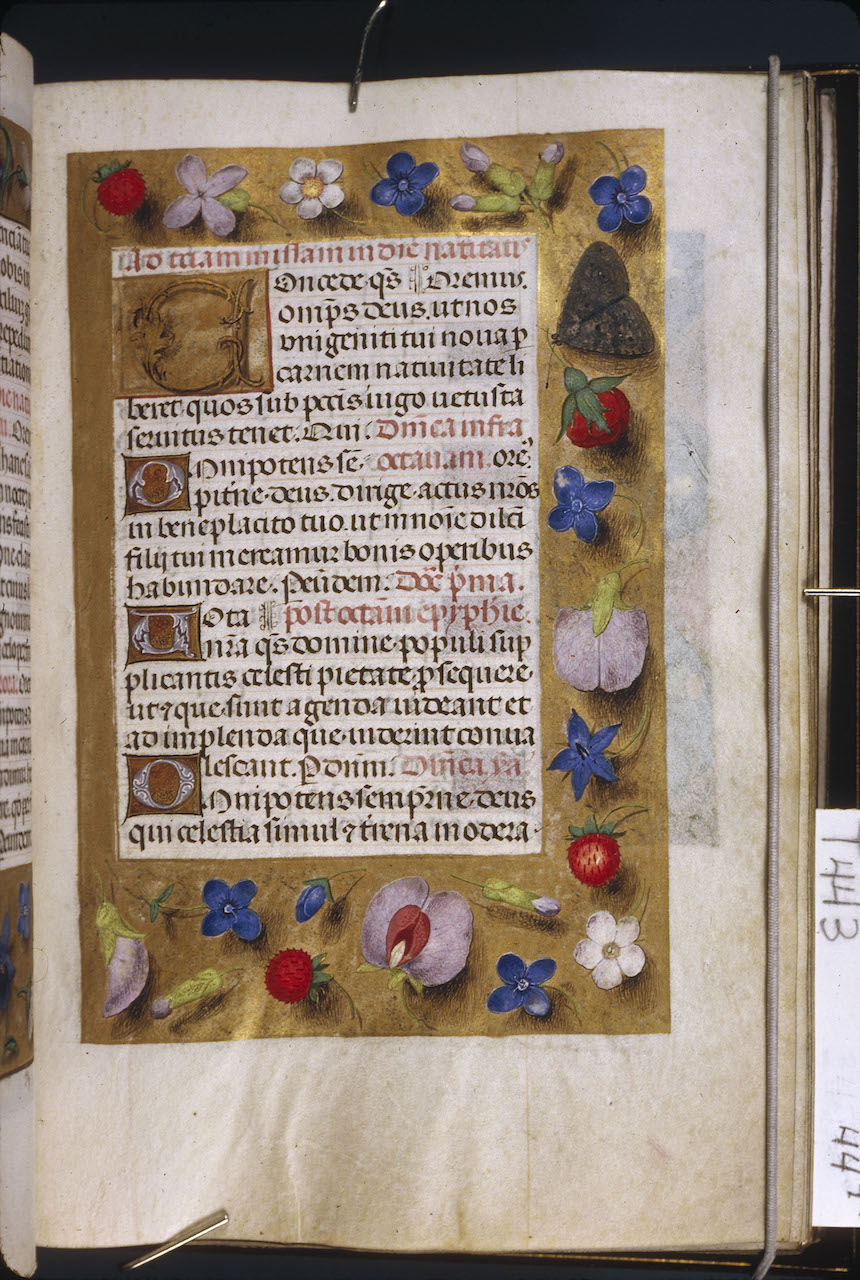 Ad tertiam missam in die natiuitatis
Concede q̄s Oremus.
omps̄ deus. ut nos
vnigeniti tui noua p̲
carnem natiuitate li
beret. quos sub pctīs iugo uetusta
seruitus tenet. Qui. Dn̄ica infra
Omnipotens se octauam. orē.
pitn̄e. deus. dirige. actus nr̄os
in beneplacito tuo. ut in noīe dilcī
filij tui mereamur bonis operibus
habundare. Per eūdem.
Uota post octām epyphīe.
nr̄a q̄s domine. populi sup
plicantis celesti pietate. ꝓsequere.
ut ⁊ que. sunt agenda uideant et
ad implenda que. uiderint conua
lescant. P dn̄m. Dn̄ica
Omnipotens sempr̄ne. deus
qui celestia simul ⁊ tīrena modera
T443
44